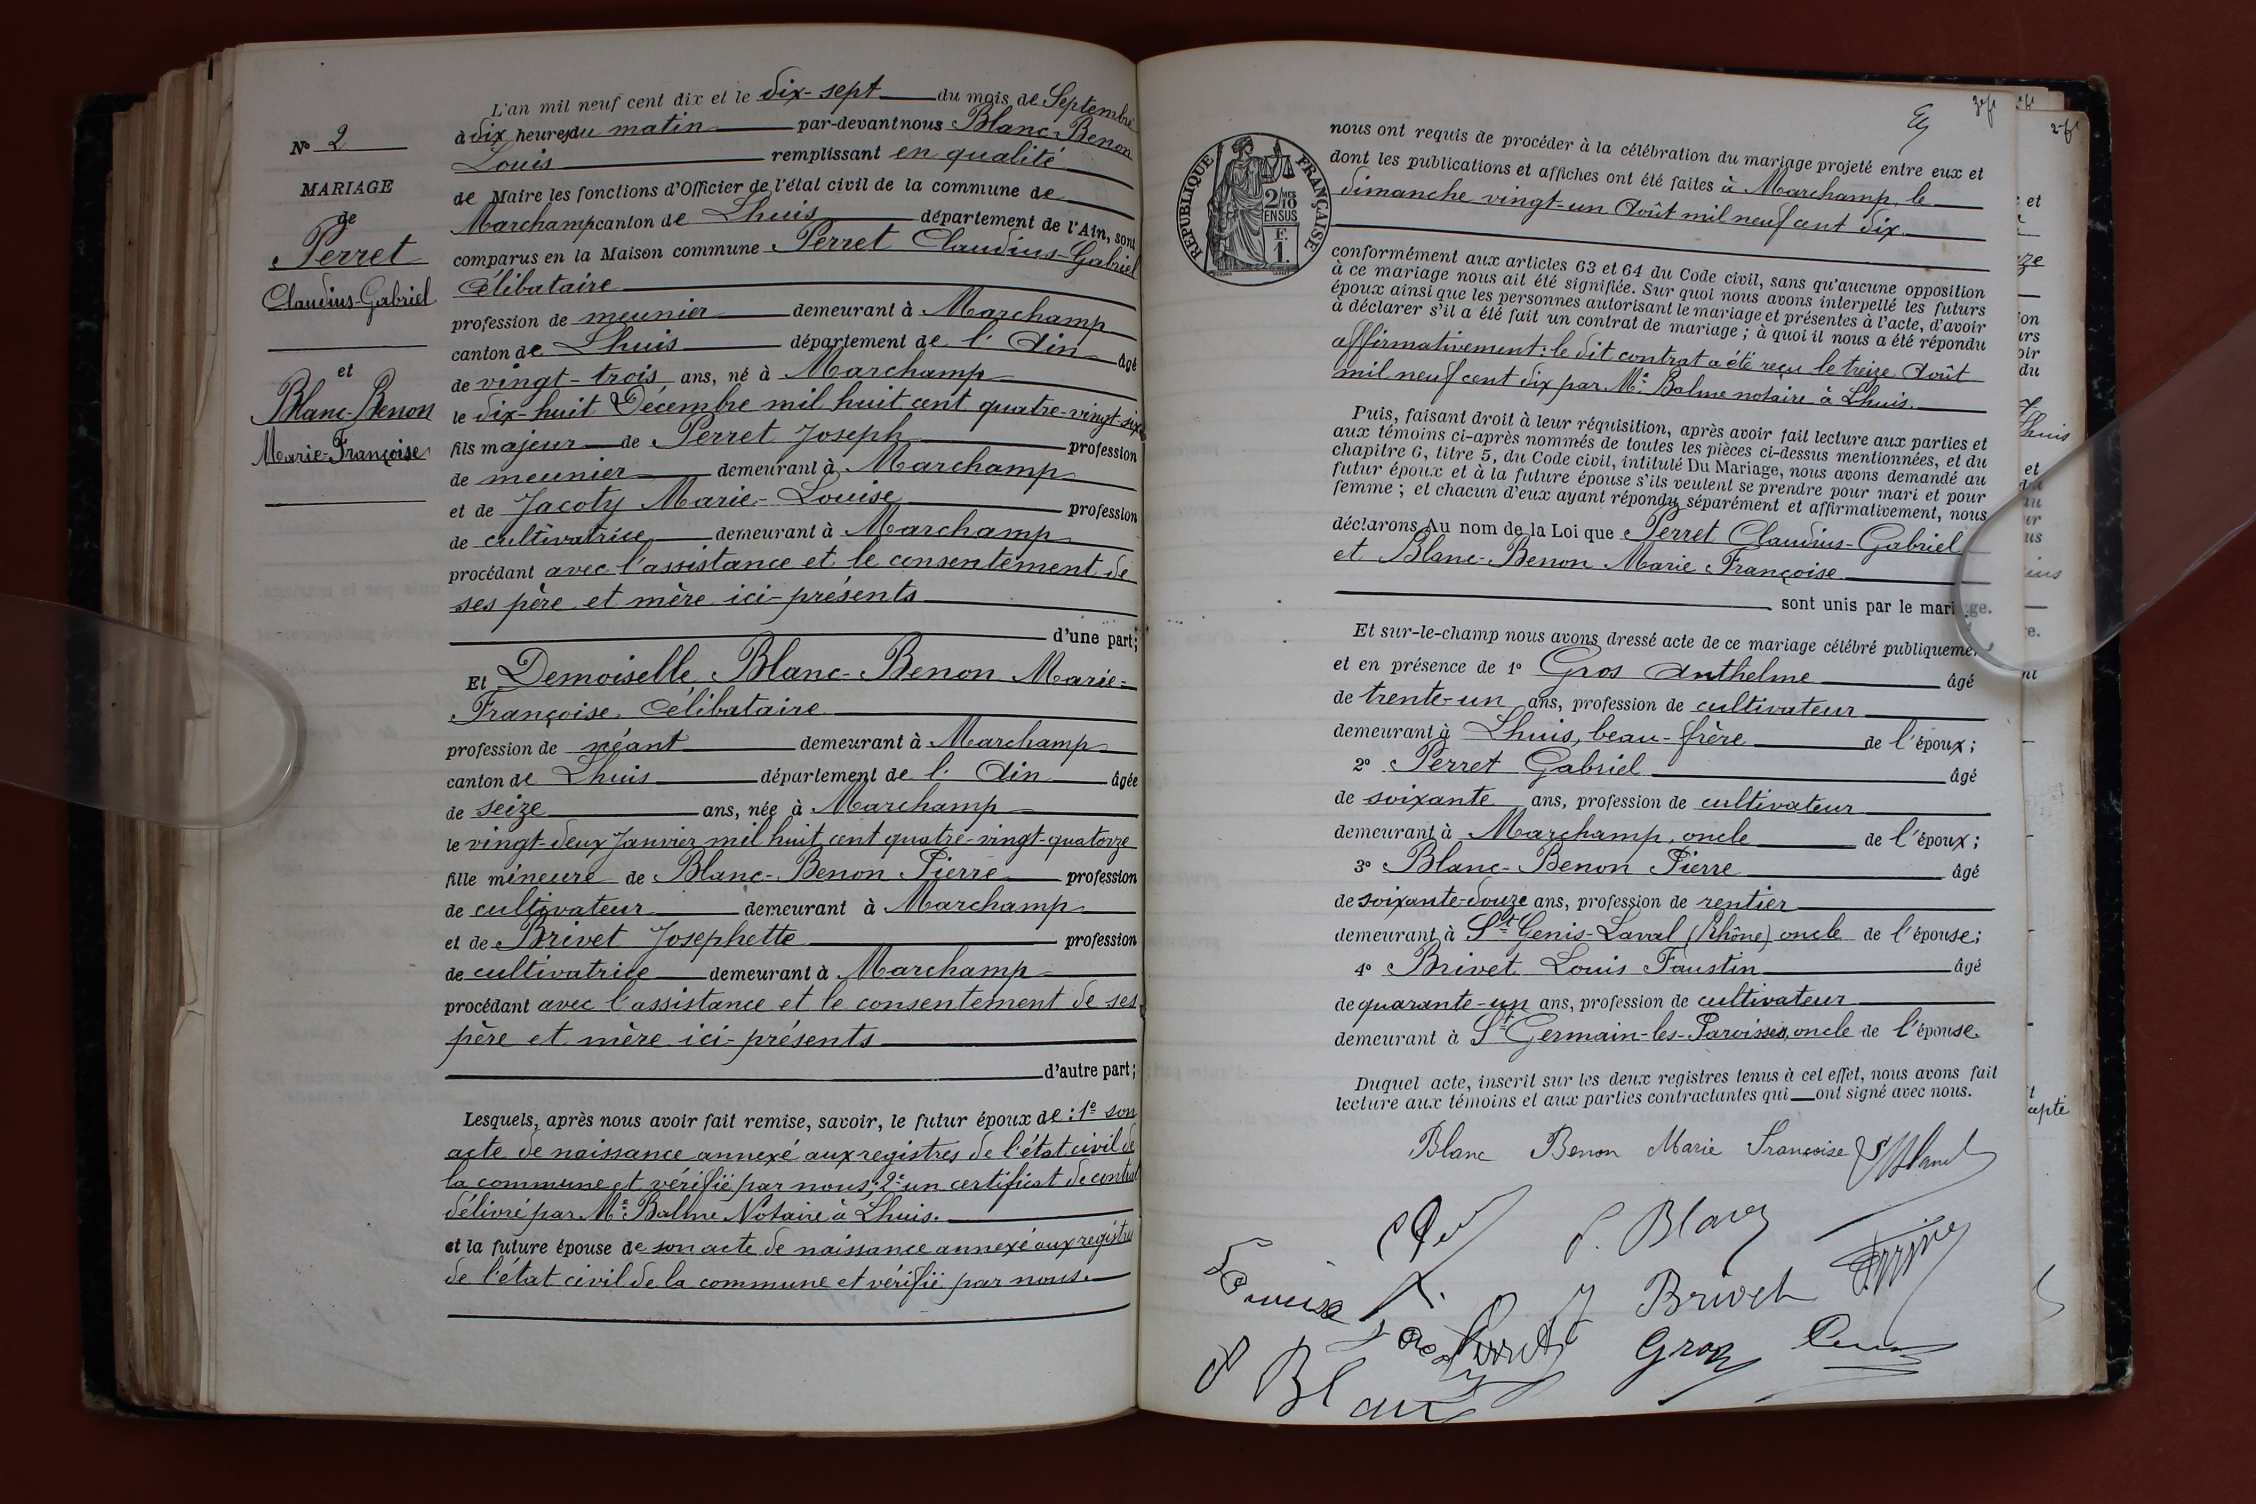 N° 2
MARIAGE
de
Perret
Claudius-Gabriel
et
Blanc-Benon
Marie-Françoise
L'an mil neuf cent dix et le dix-sept du mois de Septembre
à dix heures du matin par-devant nous Blanc-Benon
Louis remplissant en qualité
de Maire les fonctions d'Officier de l'état civil de la commune de
Marchamp canton de Lhuis département de l'Ain, sont
comparus en la Maison commune Perret Claudius-Gabriel
Célibataire
profession de meunier demeurant à Marchamp
canton de Lhuis département de l'Ain âgé
de vingt-trois ans, né à Marchamp
le dix-huit Décembre mil huit cent quatre-vingt-six
fils majeur de Perret Joseph profession
de meunier demeurant à Marchamp
et de Jacoty Marie-Louise profession
de cultivatrice demeurant à Marchamp
procédant avec l'assistance et le consentement de
ses père et mère ici-présents
d'une part;
Et Demoiselle Blanc-Benon Marie-
Françoise. Célibataire
profession de néant demeurant à Marchamp
canton de Lhuis département de l'Ain âgée
de seize ans, née à Marchamp
le vingt-deux Janvier mil huit cent quatre-vingt-quatorze
fille mineure de Blanc-Benon Pierre profession
de cultivateur demeurant à Marchamp
et de Brivet Josephette profession
de cultivatrice demeurant à Marchamp
procédant avec l'assistance et le consentement de ses
père et mère ici-présents
d'autre part;
Lesquels, après nous avoir fait remise, savoir, le futur époux de : 1° son
acte de naissance annexé aux registres de l'état civil de
la commune et vérifié par nous; 2° un certificat de contrat
délivré par Me Balme Notaire à Lhuis.
et la future épouse de son acte de naissance annexé aux registres
de l'état civil de la commune et vérifié par nous.
RÉPUBLIQUE FRANÇAISE
2/10
EN SUS
F.
1.
nous ont requis de procéder à la célébration du mariage projeté entre eux et
dont les publications et affiches ont été faites à Marchamp, le
dimanche vingt-un Août mil neuf cent dix.
conformément aux articles 63 et 64 du Code civil, sans qu'aucune opposition
à ce mariage nous ait été signifiée. Sur quoi nous avons interpellé les futurs
époux ainsi que les personnes autorisant le mariage et présentes à l'acte, d'avoir
à déclarer s'il a été fait un contrat de mariage ; à quoi il nous a été répondu
affirmativement: le dit contrat a été reçu le treize Août
mil neuf cent dix par Me Balme notaire à Lhuis.
Puis, faisant droit à leur réquisition, après avoir fait lecture aux parties et
aux témoins ci-après nommés de toutes les pièces ci-dessus mentionnées, et du
chapitre 6, titre 5, du Code civil, intitulé Du Mariage, nous avons demandé au
futur époux et à la future épouse s'ils veulent se prendre pour mari et pour
femme ; et chacun d'eux ayant répondu séparément et affirmativement, nous
déclarons Au nom de la Loi que Perret Claudius-Gabriel
et Blanc-Benon Marie Françoise
sont unis par le mariage.
Et sur-le-champ nous avons dressé acte de ce mariage célébré publiquement,
et en présence de 1° Gros Anthelme âgé
de trente-un ans, profession de cultivateur
demeurant à Lhuis, beau-frère de l'époux;
2° Perret Gabriel âgé
de soixante ans, profession de cultivateur
demeurant à Marchamp, oncle de l'époux;
3° Blanc-Benon Pierre âgé
de soixante-douze ans, profession de rentier
demeurant à St Genis-Laval (Rhône) oncle de l'épouse;
4° Brivet Louis Faustin âgé
de quarante-un ans, profession de cultivateur
demeurant à St Germain-les-Paroisses, oncle de l'épouse.
Duquel acte, inscrit sur les deux registres tenus à cet effet, nous avons fait
lecture aux témoins et aux parties contractantes qui ont signé avec nous.
Blanc Benon Marie Françoise
P. Blanc
Brivet
Perret
Gros
Blanc